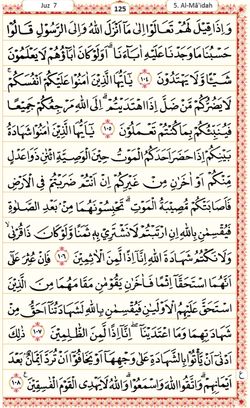 Juz 7
125
5. Al-Mâ'idah
وَاِذَا قِيْلَ لَهُمْ تَعَالَوْا اِلٰى مَآ اَنْزَلَ اللّٰهُ وَاِلَى الرَّسُوْلِ قَالُوْا
حَسْبُنَا مَا وَجَدْنَا عَلَيْهِ اٰبَآءَنَا ۗ اَوَلَوْ كَانَ اٰبَآؤُهُمْ لَا يَعْلَمُوْنَ
شَيْـًٔا وَّلَا يَهْتَدُوْنَ ١٠٤ يٰٓاَيُّهَا الَّذِيْنَ اٰمَنُوْا عَلَيْكُمْ اَنْفُسَكُمْ ۚ
لَا يَضُرُّكُمْ مَّنْ ضَلَّ اِذَا اهْتَدَيْتُمْ ۗ اِلَى اللّٰهِ مَرْجِعُكُمْ جَمِيْعًا
فَيُنَبِّئُكُمْ بِمَا كُنْتُمْ تَعْمَلُوْنَ ١٠٥ يٰٓاَيُّهَا الَّذِيْنَ اٰمَنُوْا شَهَادَةُ
بَيْنِكُمْ اِذَا حَضَرَ اَحَدَكُمُ الْمَوْتُ حِيْنَ الْوَصِيَّةِ اثْنٰنِ ذَوَا عَدْلٍ
مِّنْكُمْ اَوْ اٰخَرٰنِ مِنْ غَيْرِكُمْ اِنْ اَنْتُمْ ضَرَبْتُمْ فِى الْاَرْضِ
فَاَصَابَتْكُمْ مُّصِيْبَةُ الْمَوْتِ ۗ تَحْبِسُوْنَهُمَا مِنْۢ بَعْدِ الصَّلٰوةِ
فَيُقْسِمٰنِ بِاللّٰهِ اِنِ ارْتَبْتُمْ لَا نَشْتَرِيْ بِهٖ ثَمَنًا وَّلَوْ كَانَ ذَا قُرْبٰى ۙ
وَلَا نَكْتُمُ شَهَادَةَ اللّٰهِ اِنَّآ اِذًا لَّمِنَ الْاٰثِمِيْنَ ١٠٦ فَاِنْ عُثِرَ عَلٰٓى
اَنَّهُمَا اسْتَحَقَّآ اِثْمًا فَاٰخَرٰنِ يَقُوْمٰنِ مَقَامَهُمَا مِنَ الَّذِيْنَ
اسْتَحَقَّ عَلَيْهِمُ الْاَوْلَيٰنِ فَيُقْسِمٰنِ بِاللّٰهِ لَشَهَادَتُنَآ اَحَقُّ مِنْ
شَهَادَتِهِمَا وَمَا اعْتَدَيْنَآ ۖ اِنَّآ اِذًا لَّمِنَ الظّٰلِمِيْنَ ١٠٧ ذٰلِكَ
اَدْنٰٓى اَنْ يَّأْتُوْا بِالشَّهَادَةِ عَلٰى وَجْهِهَآ اَوْ يَخَافُوْٓا اَنْ تُرَدَّ اَيْمَانٌۢ بَعْدَ
اَيْمَانِهِمْ ۗ وَاتَّقُوا اللّٰهَ وَاسْمَعُوْا ۗ وَاللّٰهُ لَا يَهْدِى الْقَوْمَ الْفٰسِقِيْنَ ١٠٨